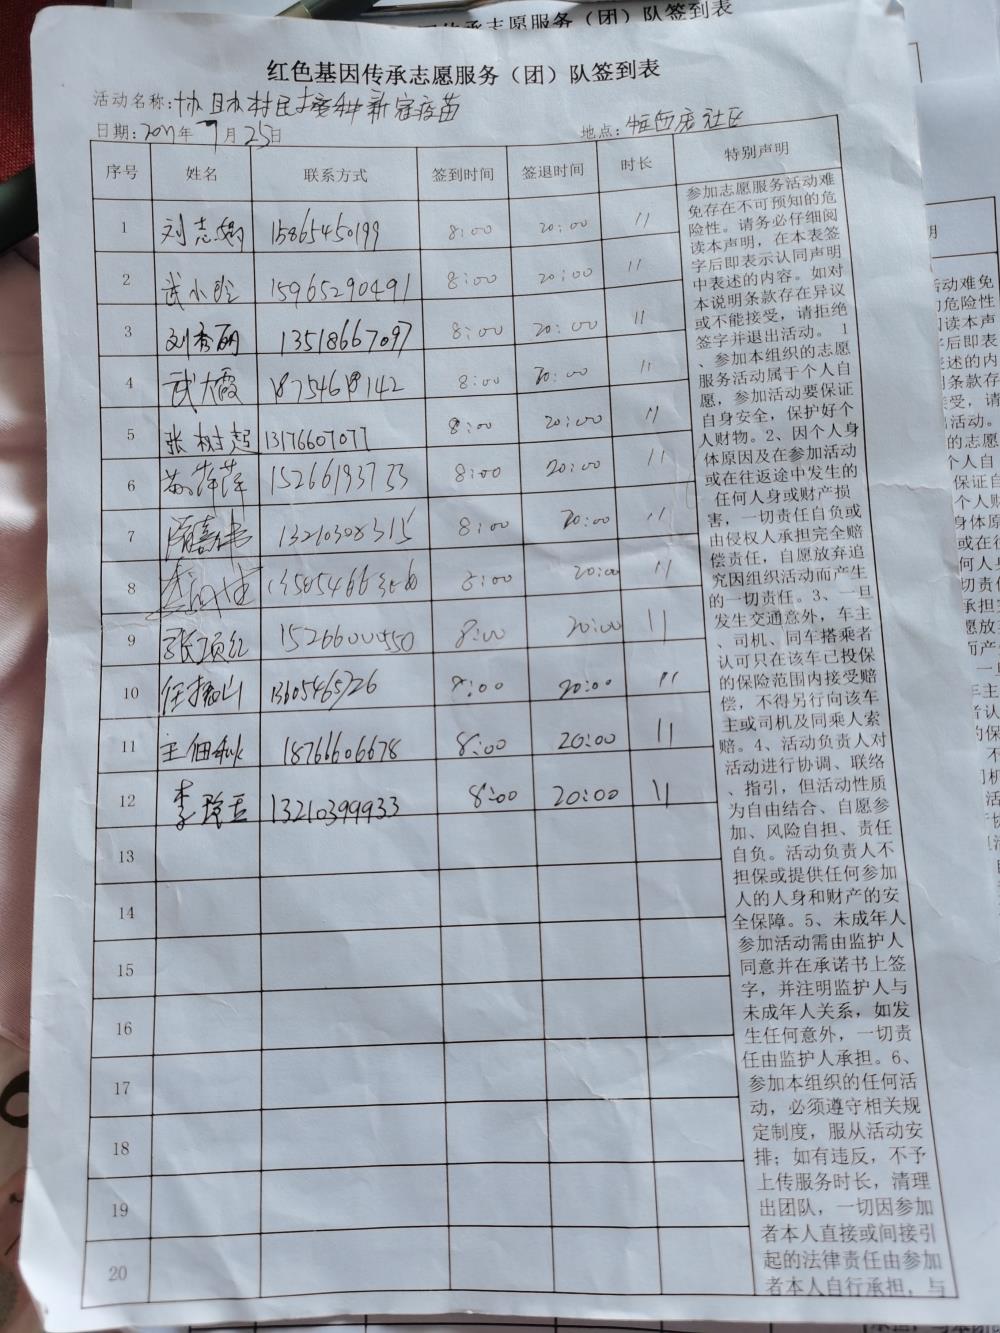 红色基因传承志愿服务（团）队签到表
活动名称:协助村民接种新冠疫苗
日期: 年7月25日
地点: 社区
序号 姓名 联系方式 签到时间 签退时间 时长 特别声明
1 刘志 15865450199 8:00 20:00 11
2 武小玲 15965290491 8:00 20:00 11
3 刘秀丽 13518667097 8:00 20:00 11
4 武大霞 18754618142 8:00 20:00 11
5 张树超 13176607077 8:00 20:00 11
6 萍萍 15266193733 8:00 20:00 11
7 隋嘉伟 13210308315 8:00 20:00 11
8 8:00 20:00 11
9 张项红 15266000550 8:00 20:00 11
10 任振山 13605465726 8:00 20:00 11
11 王佃秋 18766606678 8:00 20:00 11
12 李玲玉 13210399933 8:00 20:00 11
13
14
15
16
17
18
19
20
参加志愿服务活动难
免存在不可预知的危
险性。请务必仔细阅
读本声明，在本表签
字后即表示认同声明
中表述的内容。如对
本说明条款存在异议
或不能接受，请拒绝
签字并退出活动。 1
、参加本组织的志愿
服务活动属于个人自
愿，参加活动要保证
自身安全，保护好个
人财物。2、因个人身
体原因及在参加活动
或在往返途中发生的
任何人身或财产损
害，一切责任自负或
由侵权人承担完全赔
偿责任，自愿放弃追
究因组织活动而产生
的一切责任。3、一旦
发生交通意外，车主
、司机、同车搭乘者
认可只在该车已投保
的保险范围内接受赔
偿，不得另行向该车
主或司机及同乘人索
赔。4、活动负责人对
活动进行协调、联络
、指引，但活动性质
为自由结合、自愿参
加、风险自担、责任
自负。活动负责人不
担保或提供任何参加
人的人身和财产的安
全保障。5、未成年人
参加活动需由监护人
同意并在承诺书上签
字，并注明监护人与
未成年人关系，如发
生任何意外，一切责
任由监护人承担。6、
参加本组织的任何活
动，必须遵守相关规
定制度，服从活动安
排；如有违反，不予
上传服务时长，清理
出团队，一切因参加
者本人直接或间接引
起的法律责任由参加
者本人自行承担，与